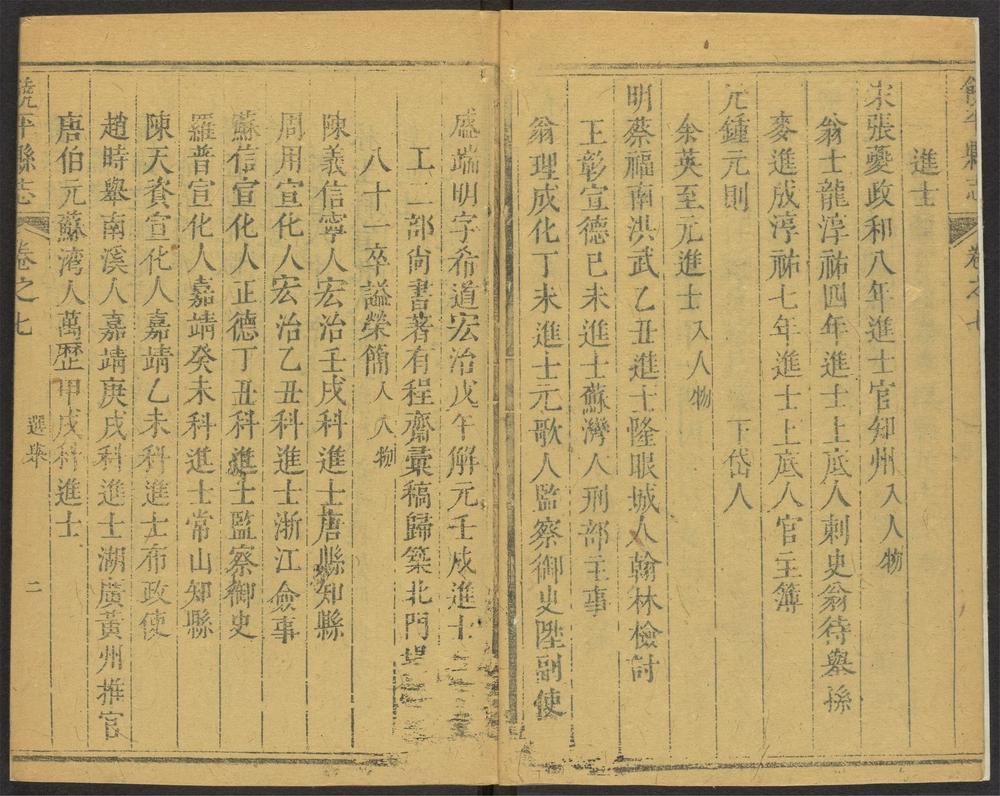 饒平縣志 卷之七
進士
宋張夔政和八年進士官知州入人物
翁士龍淳祐四年進士上底人刺史翁待舉孫
麥進成淳祐七年進士上底人官主簿
元鍾元則 下岱人
余英至元進士入人物
明蔡福南洪武乙丑進士隆眼城人翰林檢討
王彰宣德己未進士蘇灣人刑部主事
翁理成化丁未進士元歌人監察御史陞副使
盛端明字希道宏治戊午解元壬戌進士
工二部尚書著有程齋彙稿歸築北門
八十一卒諡榮簡入人物
陳義信寧人宏治壬戌科進士唐縣知縣
周用宣化人宏治乙丑科進士浙江僉事
蘇信宣化人正德丁丑科進士監察御史
羅普宣化人嘉靖癸未科進士常山知縣
陳天資宣化人嘉靖乙未科進士布政使
趙時舉南溪人嘉靖庚戌科進士湖廣黃州推官
唐伯元蘇湾人萬歷甲戌科進士
饒平縣志 卷之七 選舉 二